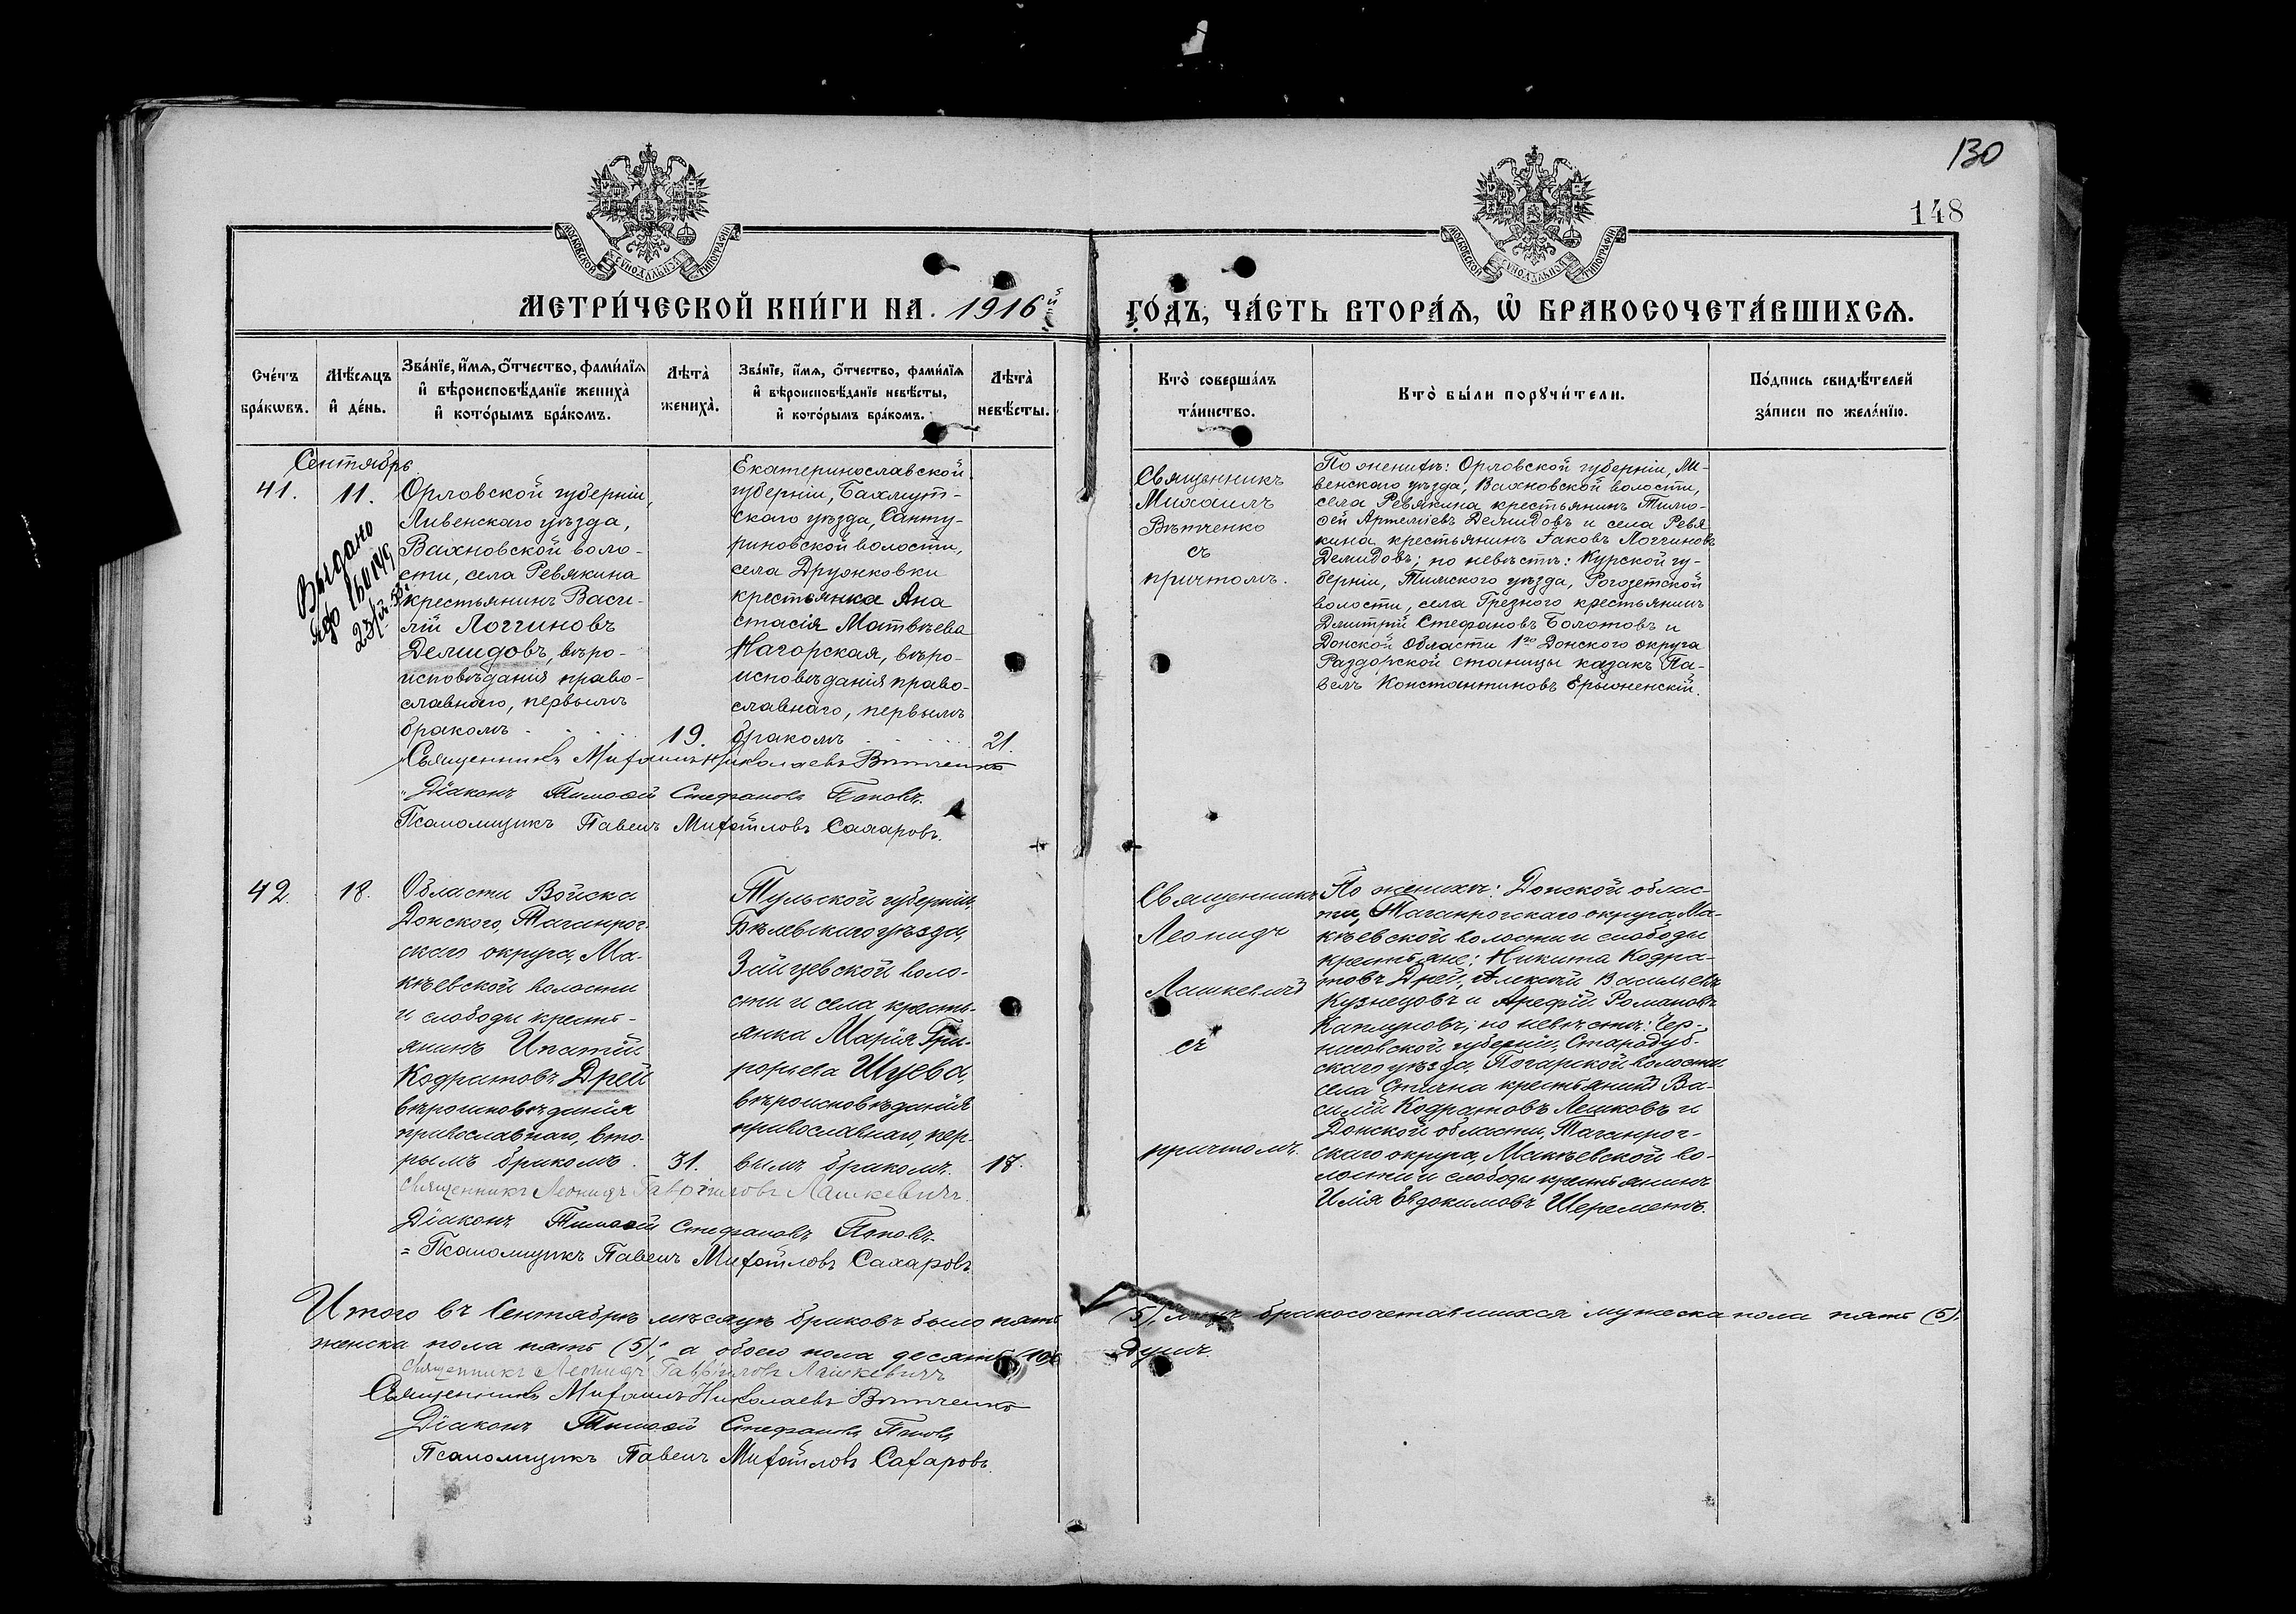 130
148
МОСКОВСКОЙ СУНОДАЛЬНОЙ ТИПОГРАФІИ
МОСКОВСКОЙ СУНОДАЛЬНОЙ ТИПОГРАФІИ
МЕТРИ́ЧЕСКОЙ КНИ́ГИ НА 1916й
ГО́ДЪ, ЧА́СТЬ ВТОРА́Я, Ѿ БРАКОСОЧЕТА́ВШИХСЯ.
Сче́тъ бра́кѡвъ.
Мѣ́сяцъ и де́нь.
Зва́нїе, и́мя, ѻ́тчество, фами́лїя и вѣроисповѣ́данїе жениха̀ и кото́рымъ бра́комъ.
Лѣта̀ жениха̀.
Зва́нїе, и́мя, ѻ́тчество, фами́лїя и вѣроисповѣ́данїе невѣ́сты, и кото́рымъ бра́комъ.
Лѣта̀ невѣ́сты.
Кто̀ соверша́лъ та́инство.
Кто̀ бы́ли порꙋчи́тели.
По́дпись свидѣ́телей за́писи по жела́нїю.
Сентябрь
41.
11.
Выдано
Орловской губерніи,
Ливенскаго уѣзда,
Вахновской воло-
сти, села Ревякина
крестьянинъ Васи-
лій Логгиновъ
Демидовъ, вѣро-
исповѣданія право-
славнаго, первымъ
бракомъ
19.
Екатеринославской
губерніи, Бахмут-
скаго уѣзда, Санту-
риновской волости,
села Дружковки
крестьянка Ана
стасія Матвѣева
Нагорская, вѣро-
исповѣданія право-
славнаго, первымъ
бракомъ
21.
Священникъ
Михаилъ
Вѣтченко
съ
причтомъ.
По женихѣ: Орловской губерніи, Ли-
венскаго уѣзда, Вахновской волости,
села Ревякина крестьянинъ Тимо-
ѳей Артеміевъ Демидовъ и села Ревя
кина крестьянинъ Іаковъ Логгиновъ
Демидовъ; по невѣстѣ: Курской гу-
берніи, Тимскаго уѣзда, Рогозетской
волости, села Грезного крестьянинъ
Дмитрій Стефановъ Болотовъ и
Донской Области 1го Донского округа
Раздорской станицы казакъ Па-
велъ Константиновъ Ерыженскій.
Священникъ Михаилъ Николаевъ Вѣтченко
Діаконъ Тимоѳей Стефановъ Поповъ.
Псаломщикъ Павелъ Михайловъ Сахаровъ.
42.
18.
Области Войска
Донского, Таганрог-
скаго округа, Ма-
кѣевской волости
и слободы кресть-
янинъ Ипатій
Кодратовъ Дрей
вѣроисповѣданія
православнаго, вто-
рымъ бракомъ.
31.
Тульской губерніи,
Бѣлевскаго уѣзда,
Зайцевской воло-
сти и села кресть-
янка Марія Гри-
горьева Шуева,
вѣроисповѣданія
православнаго, пер-
вымъ бракомъ.
17.
Священникъ
Леонидъ
Лашкевичъ
съ
причтомъ.
По женихѣ: Донской облас-
ти, Таганрогскаго округа, Ма-
кѣевской волости и слободы
крестьяне: Никита Кодра-
товъ Дрей, Алексѣй Васильевъ
Кузнецовъ и Арефій Романовъ
Каплуновъ; по невѣстѣ: Чер-
ниговской губерніи, Стародуб-
скаго уѣзда, Погарской волости
села Стична крестьянинъ Ва-
силій Кодратовъ Лешковъ и
Донской области, Таганрог-
скаго округа, Макѣевской во-
лости и слободы крестьянинъ
Илія Евдокимовъ Шереметъ.
Священникъ Леонидъ Гавріиловъ Лашкевичъ.
Діаконъ Тимоѳей Стефановъ Поповъ.
Псаломщикъ Павелъ Михайловъ Сахаровъ.
Итого въ Сентябрѣ мѣсяцѣ браковъ было пять (5), лицъ бракосочетавшихся мужеска пола пять (5),
женска пола пять (5), а обоего пола десять (10) душъ.
Священникъ Леонидъ Гавріиловъ Лашкевичъ
Священникъ Михаилъ Николаевъ Вѣтченко
Діаконъ Тимоѳей Стефановъ Поповъ
Псаломщикъ Павелъ Михайловъ Сахаровъ.